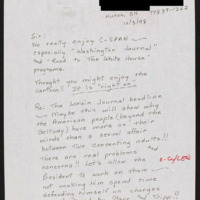 Huron, OH 44839-1262
10/3/98
Sir:
We really enjoy C-SPAN
especially "Washington Journal"
and "Road to The White House"
programs.
Thought you might enjoy the
cartoon! It is "right on"
Re: The Lorain Journal headline
— Maybe this will show why
the American people (beyond the
Beltway) have more on their
minds than a sexual affair
between two consenting adults!!
There are real problems and
concerns!! Let's allow the
President to work on them —
not making him spend time
defending himself on charges